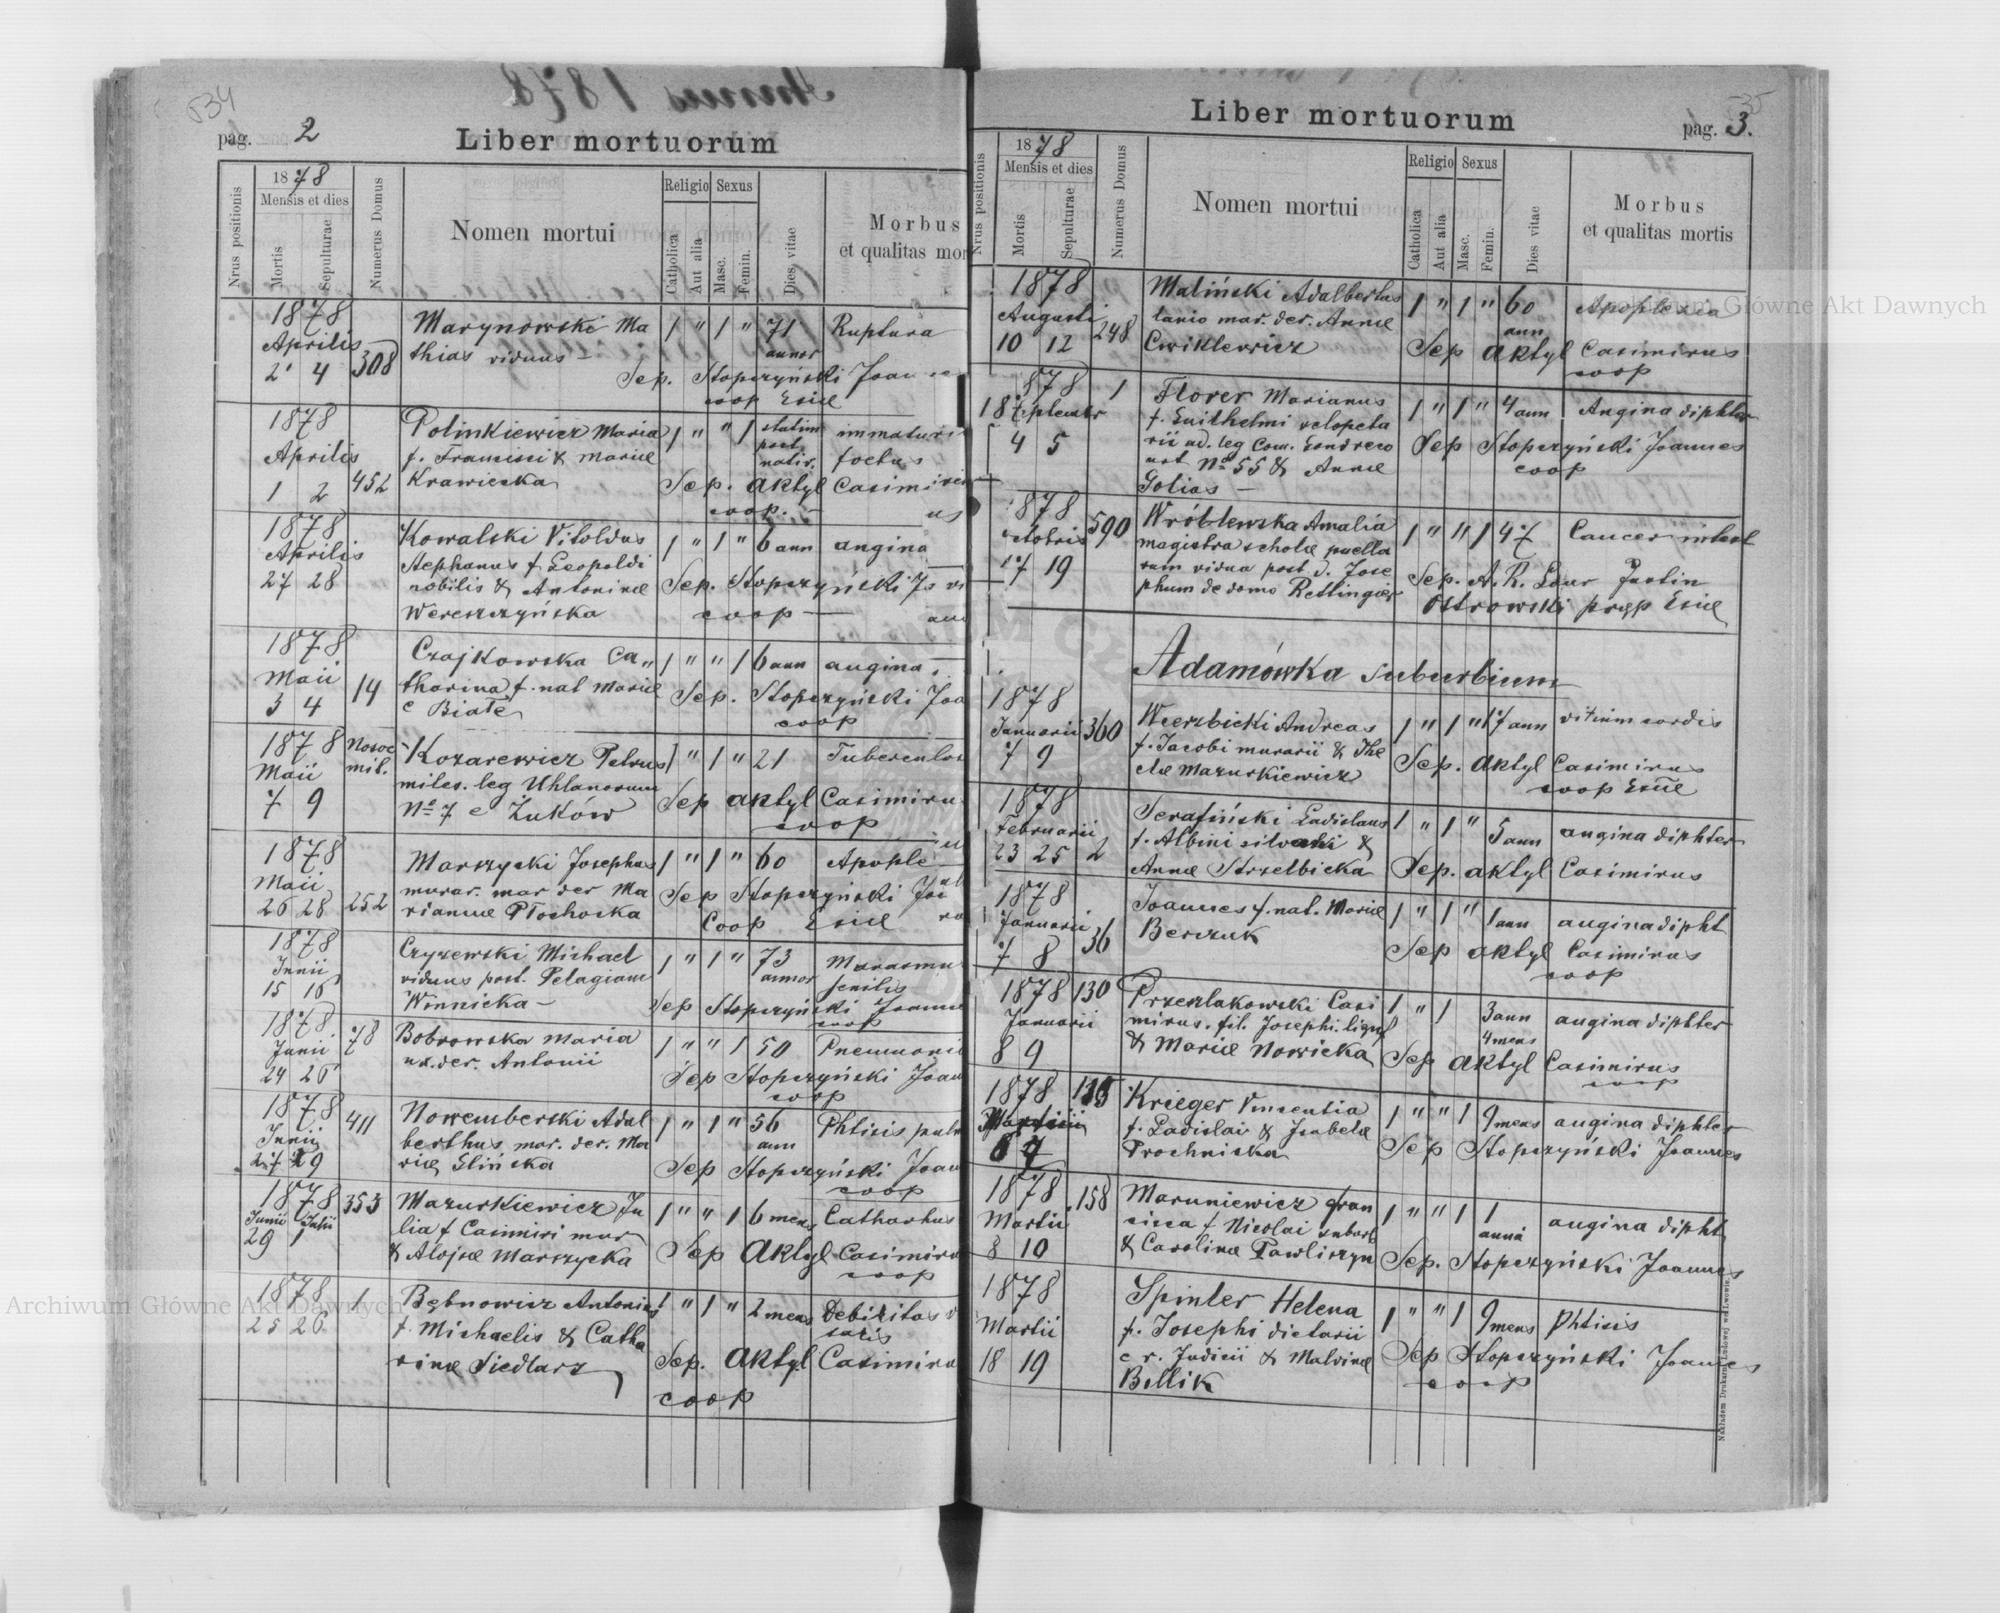 534
pag. 2
Liber mortuorum
Nrus positionis
1878
Mensis et dies
Mortis
Sepulturae
Numerus Domus
Nomen mortui
Religio
Catholica
Aut alia
Sexus
Masc.
Femin.
Dies vitae
Morbus
et qualitas mor
1878
Aprilis
2 4 308
Marynowski Ma
thias viduus
1 " 1 " 71
annor
Ruptura
Sep. Stopczyński Joan
coop Esiae
1878
Aprilis
1 2 452
Polinkiewicz Maria
f. Francisci & Mariae
Krawiecka
1 " " 1 statim
post
nativ.
immaturi
foetus
Sep. Aktyl Casimirus
coop.
1878
Aprilis
27 28
Kowalski Vitoldus
Stephanus f Leopoldi
nobilis & Antoninae
Wereszczyńska
1 " 1 " 6 ann angina
Sep. Stopczyński Jo
coop
1878
Maii
3 4 14
Czajkowska Ca"
tharina f. nat Mariae
c Białe
1 " " 1 6 ann angina
Sep. Stopczyński Joa
coop
1878
Maii
7 9
Nosoc
mil.
Kozarewicz Petrus
miles. leg Uhlanorum
No 7 e Żuków
1 " 1 " 21 Tuberculos
Sep Aktyl Casimiru
coop
1878
Maii
26 28 252
Marszycki Josephus
murar. mar der Ma
riannae Płochocka
1 " 1 " 60 Apople
Sep Stopczyński Joa
Coop Esiae
1878
Junii
15 16
Czyżewski Michael
viduus post. Pelagiam
Winnicka
1 " 1 " 73
annor
Marasmu
senilis
Sep Stopczyński Joanne
coop
1878
Junii
24 26 78
Bobrowska Maria
ux. der. Antonii
1 " " 1 50 Pneumoni
Sep Stopczyński Joan
coop
1878
Junii
27 29 411
Nowemberski Adal
berthus mar. der. Ma
riae Glińska
1 " 1 " 56
ann
Phtisis pulm
Sep Stopczyński Joan
coop
1878
Junii Julii
29 1 353
Mazurkiewicz Ju
lia f Casimiri mur
& Alojsae Marszycka
1 " " 1 6 mens Catharhus
Sep Aktyl Casimiru
coop
1878
25 26 1
Bębnowicz Antonius
f. Michaelis & Catha
rinae Siedlarz
1 " 1 " 2 mens Debilitas v
Sep. Aktyl Casimiru
coop
35
Liber mortuorum
pag. 3.
Nrus positionis
1878
Mensis et dies
Mortis
Sepulturae
Numerus Domus
Nomen mortui
Religio
Catholica
Aut alia
Sexus
Masc.
Femin.
Dies vitae
Morbus
et qualitas mortis
1878
Augusti
10 12 248
Maliński Adalbertus
lanio mar. der. Annae
Cwiklewicz
1 " 1 " 60
ann
Apoplexia
Sep Aktyl Casimirus
coop
1878
Septembr
4 5
1
Florer Marianus
f. Guilhelmi sclopeta
rii ad. leg Com.
No 55 & Annae
Golias
1 " 1 " 4 ann Angina diphter
Sep Stopczyński Joannes
coop
1878
Octobris
17 19 590
Wróblewska Amalia
magistra scholae puella
rum vidua post. d. Jose
phum de domo Rettinger
1 " " 1 47 Cancer intest
Sep. A. R. Justin
Ostrowski Esiae
Adamówka suburbium
1878
Januarii
7 9 360
Wierzbicki Andreas
f. Jacobi murarii & The
clae Mazurkiewicz
1 " 1 " 17 ann vitium cordis
Sep. Aktyl Casimirus
coop Esiae
1878
Februarii
23 25 2
Serafiński Ladislaus
f. Albini &
Annae Strzelbicka
1 " 1 " 5 ann angina diphter
Sep. Aktyl Casimirus
1878
Januarii
7 8 36
Joannes f. nat. Mariae
Berczuk
1 " 1 " 1 ann angina dipht
Sep Aktyl Casimirus
coop
1878
Januarii
8 9 130
Przeszlakowski Casi
mirus. fil. Josephi. lignif
& Mariae Nowicka
1 " 1 3 ann
4 mens
angina diphter
Sep Aktyl Casimirus
coop
1878
Martii
6 7
Krieger Vincentia
f. Ladislai & Isabelae
Prochniska
1 " " 1 9 mens angina diphter
Sep Stopczyński Joannes
1878
Martii
8 10 158
Maruniewicz Fran
cisca f Nicolai suburb
& Carolinae Pawliszyn
1 " " 1 1
anni
angina dipht
Sep. Stopczyński Joannes
1878
Martii
18 19
Spinler Helena
f. Josephi dietarii
c r. Judicii & Malvinae
Billik
1 " " 1 9 mens Phtisis
Sep Stopczyński Joannes
coop
Nakładem Drukarni Ludowej we Lwowie.
Archiwum Główne Akt Dawnych
Archiwum Główne Akt Dawnych